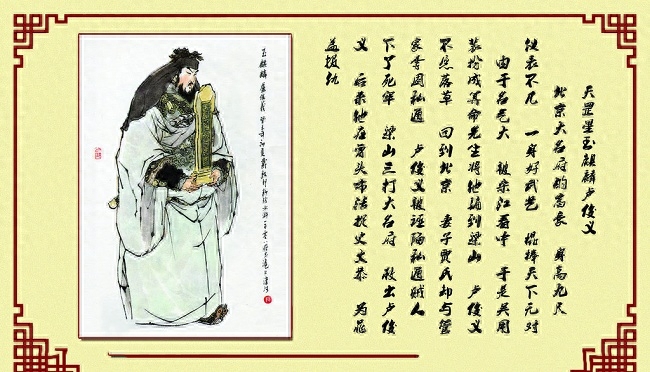 天罡星玉麒麟卢俊义
北京大名府的富长 身高九尺
仪表不凡 一身好武艺 棍棒天下无对
由于名气大 被宋江看中 于是吴用
装扮成算命先生将他骗到梁山 卢俊义
不愿落草 回到北京 妻子贾氏却与管
家李固私通 卢俊义被诬陷私通贼人
下了死牢 梁山三打大名府 救出卢俊
义 后来他在曾头市活捉史文恭 为晁
盖报仇
玉麒麟 卢俊义